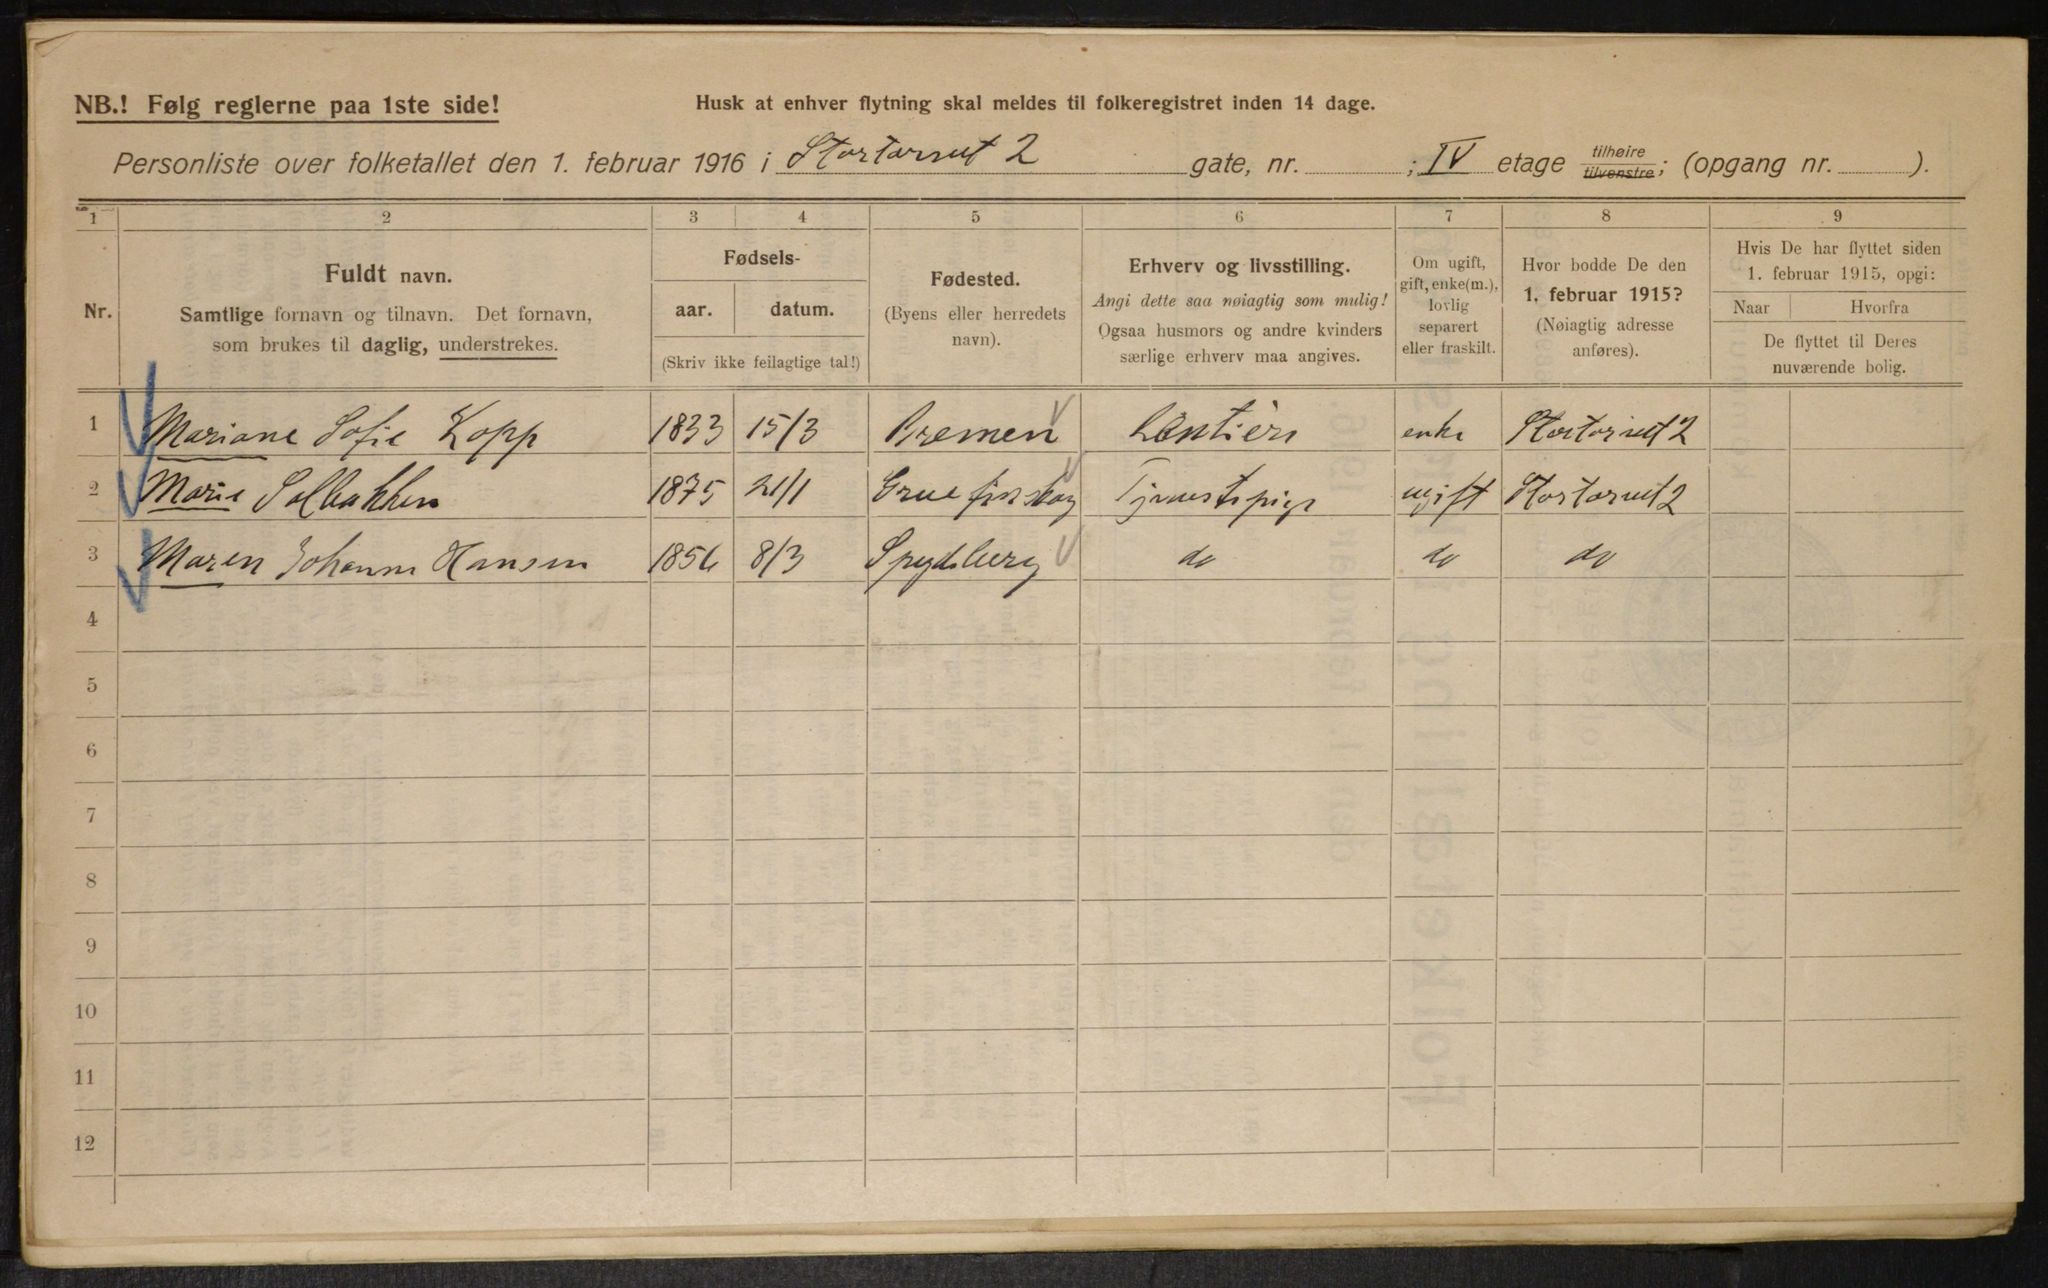 NB.! Følg reglerne paa 1ste side!
Husk at enhver flytning skal meldes til folkeregistret inden 14 dage.
Personliste over folketallet den 1. februar 1916 i Stortorvet 2 gate, nr. ; IV etage tilhøire tilvenstre; (opgang nr. ).
1 2 3 4 5 6 7 8 9
Nr.
Fuldt navn.
Samtlige fornavn og tilnavn. Det fornavn,
som brukes til daglig, understrekes.
Fødsels-
aar. datum.
(Skriv ikke feilagtige tal!)
Fødested.
(Byens eller herredets
navn).
Erhverv og livsstilling.
Angi dette saa nøiagtig som mulig!
Ogsaa husmors og andre kvinders
særlige erhverv maa angives.
Om ugift,
gift, enke(m.),
lovlig
separert
eller fraskilt.
Hvor bodde De den
1. februar 1915?
(Nøiagtig adresse
anføres).
Hvis De har flyttet siden
1. februar 1915, opgi:
Naar Hvorfra
De flyttet til Deres
nuværende bolig.
1 Mariane Sofie Kopp 1833 15/3 Bremen Rentière enke Stortorvet 2
2 Marie Solbakken 1875 21/1 Grue finskog Tjenestepige ugift Stortorvet 2
3 Maren Johanne Hansen 1856 8/3 Spydeberg do do do
4
5
6
7
8
9
10
11
12